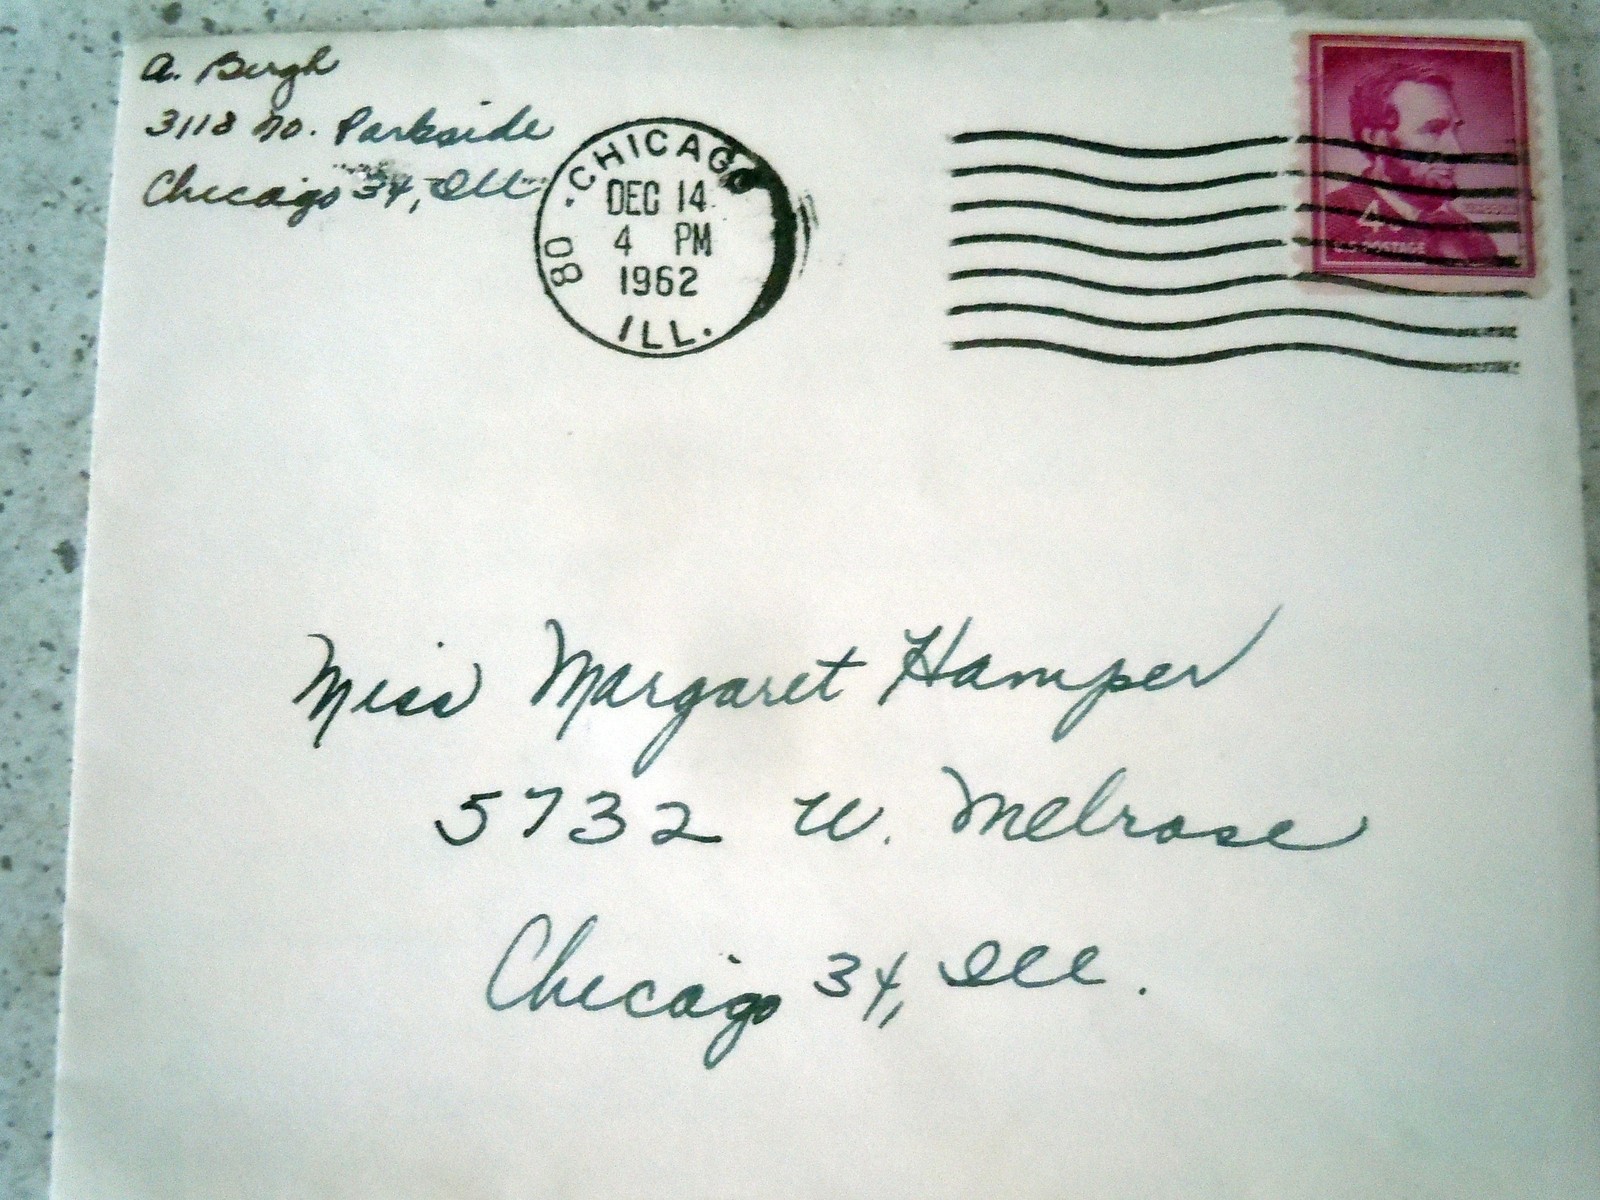 A. Bergh
3118 No. Parkside
Chicago 34, Ill
CHICAGO
DEC 14
4 PM
1962
80
ILL.
4¢
U.S. POSTAGE
Miss Margaret Hamper
5732 W. Melrose
Chicago 34, Ill.